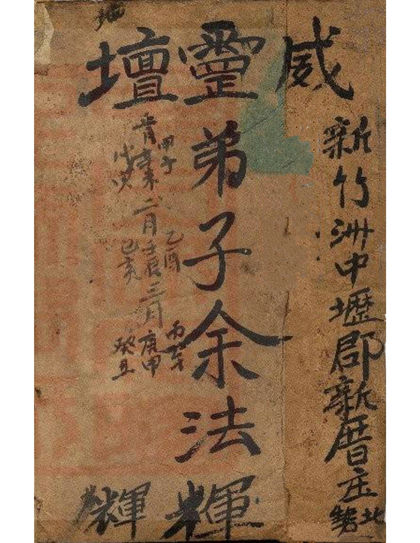 威靈壇
新竹洲中壢郡新厝庄北勢
弟子余法輝
甲子
二月壬辰
乙酉
己亥
三月
庚申
癸丑
輝